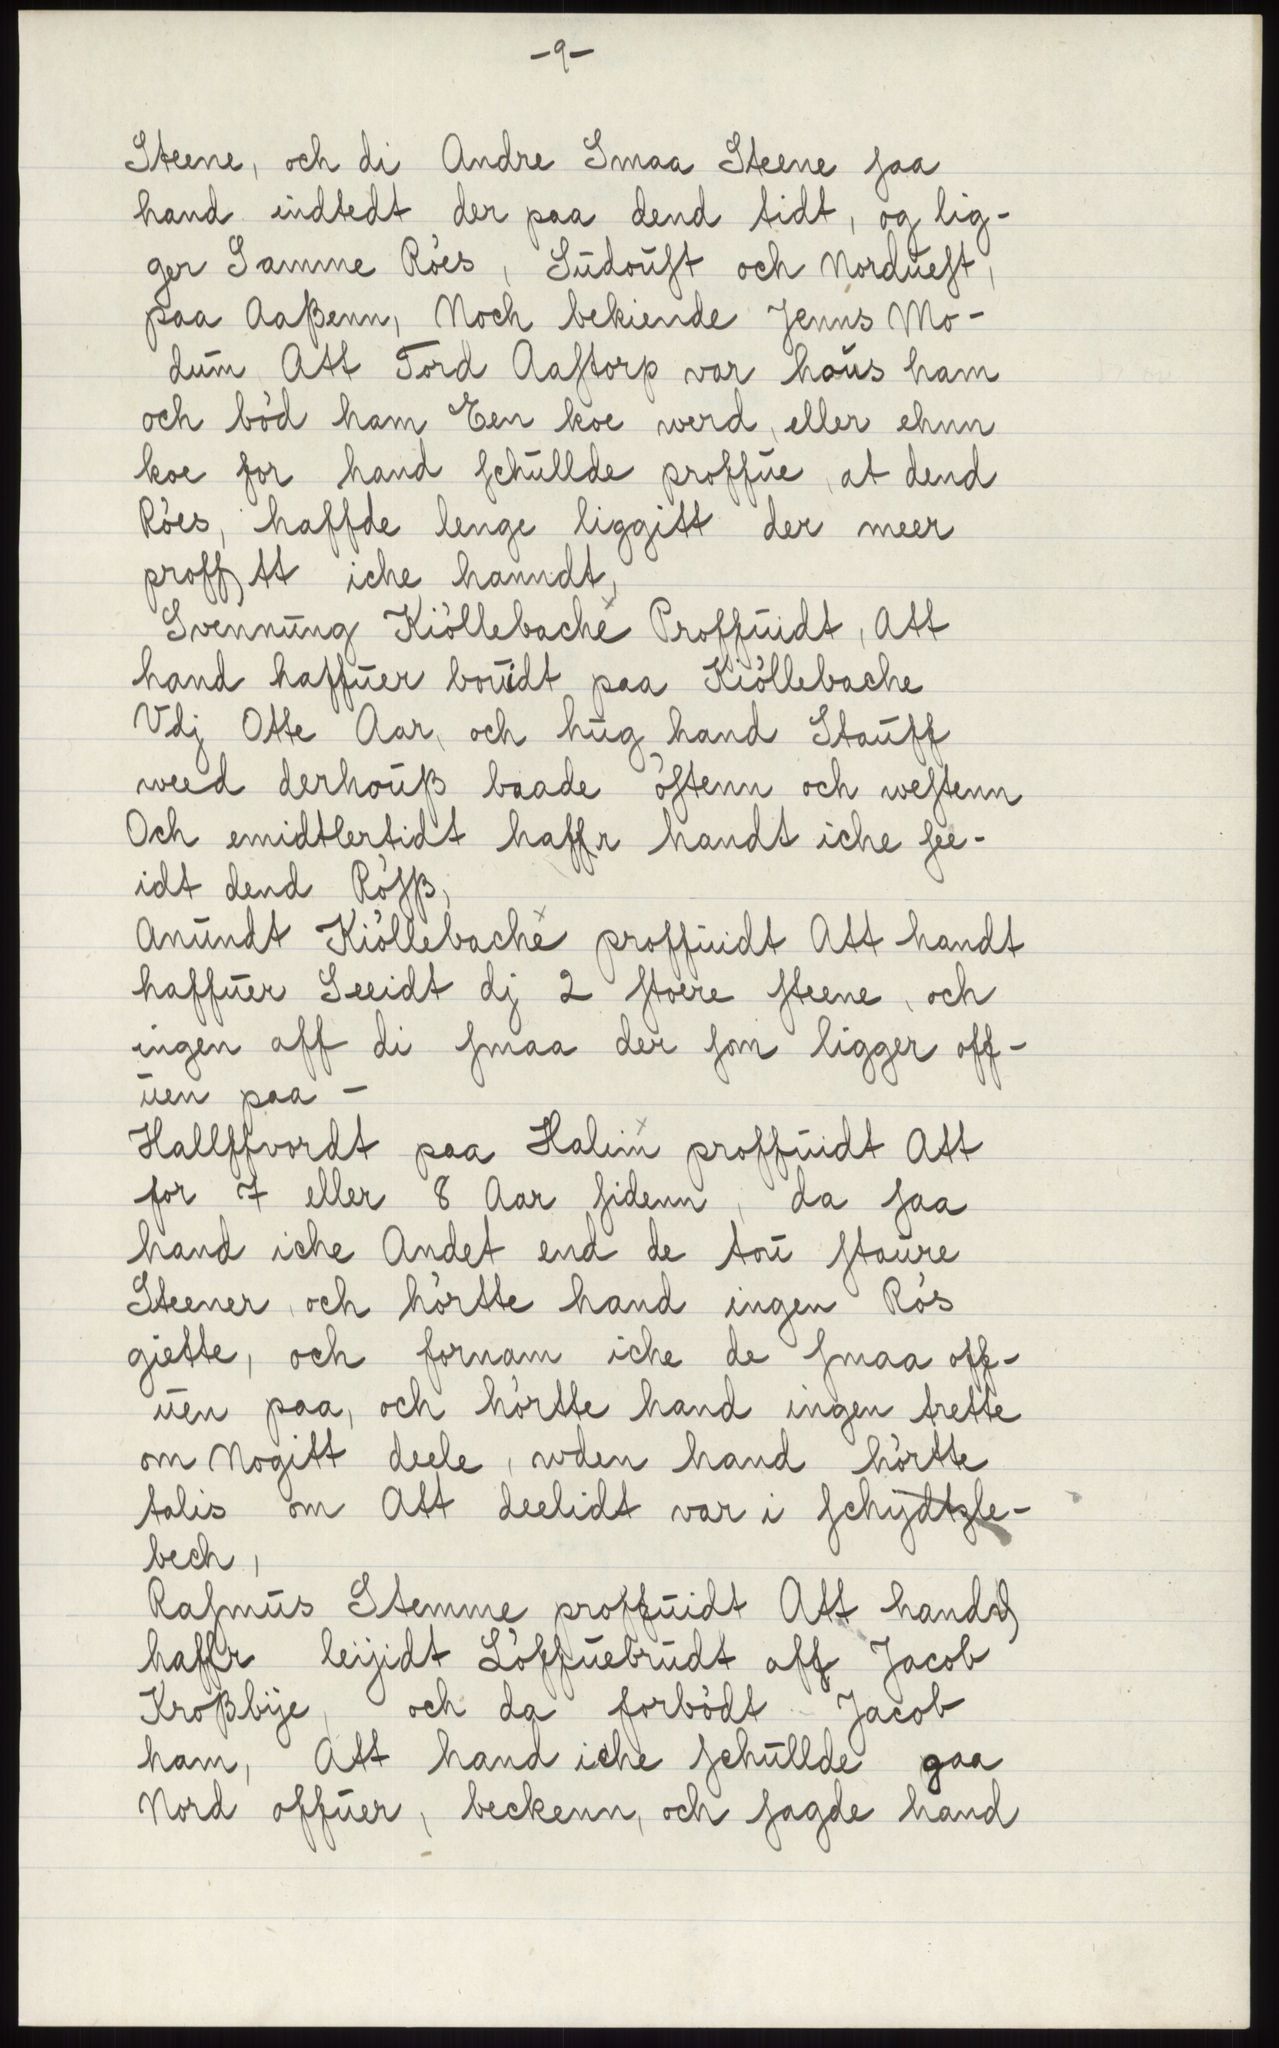 -9-
Steene, och di Andre Smaa Steene saa
hand indtedt der paa dend tidt, og lig-
ger Samme Röes, Südoüst och Nordüest,
paa Aaßenn, Noch bekiende Jenns Mo-
düm Att Tord Aastorp var hoüs ham
och böd ham Een koe werd, eller ehnn
koe for hand schüllde proffüe, at dend
Röes, haffde lenge liggitt der meer
proffŧt iche hanndt,
Svennüng Kiöllebache Proffüidt, Att
hand haffüer boüidt paa Kiöllebache
Vdj Otte Aar, och hüg hand Staüff
weed derhoüß baade östenn och westenn
Och emidtlertidt haffr handt iche see-
idt dend Rösß,
Anündt Kiöllebache proffüidt Att handt
haffüer Seeidt dj 2 stoere steene, och
ingen aff di smaa der som ligger off-
üen paa -
Hallffvordt paa Halim proffüidt Att
for 7 eller 8 Aar sidenn, da saa
hand iche Andet end de toü staüre
Steener, och hörtte hand ingen Rös
giette, och fornam iche de smaa off-
üen paa, och hörtte hand ingen trette
om Nogitt deele, wden hand hörtte
talis om Att deelidt var i schydtzle-
bech,
Rasmüs Stemme proffüidt Att handt
haffr leijidt Löffüebrüdt aff Jacob
Kroßbÿe, och da forbödt Jacob
ham, Att hand iche schüllde gaa
Nord offüer, beckenn, och sagde hand